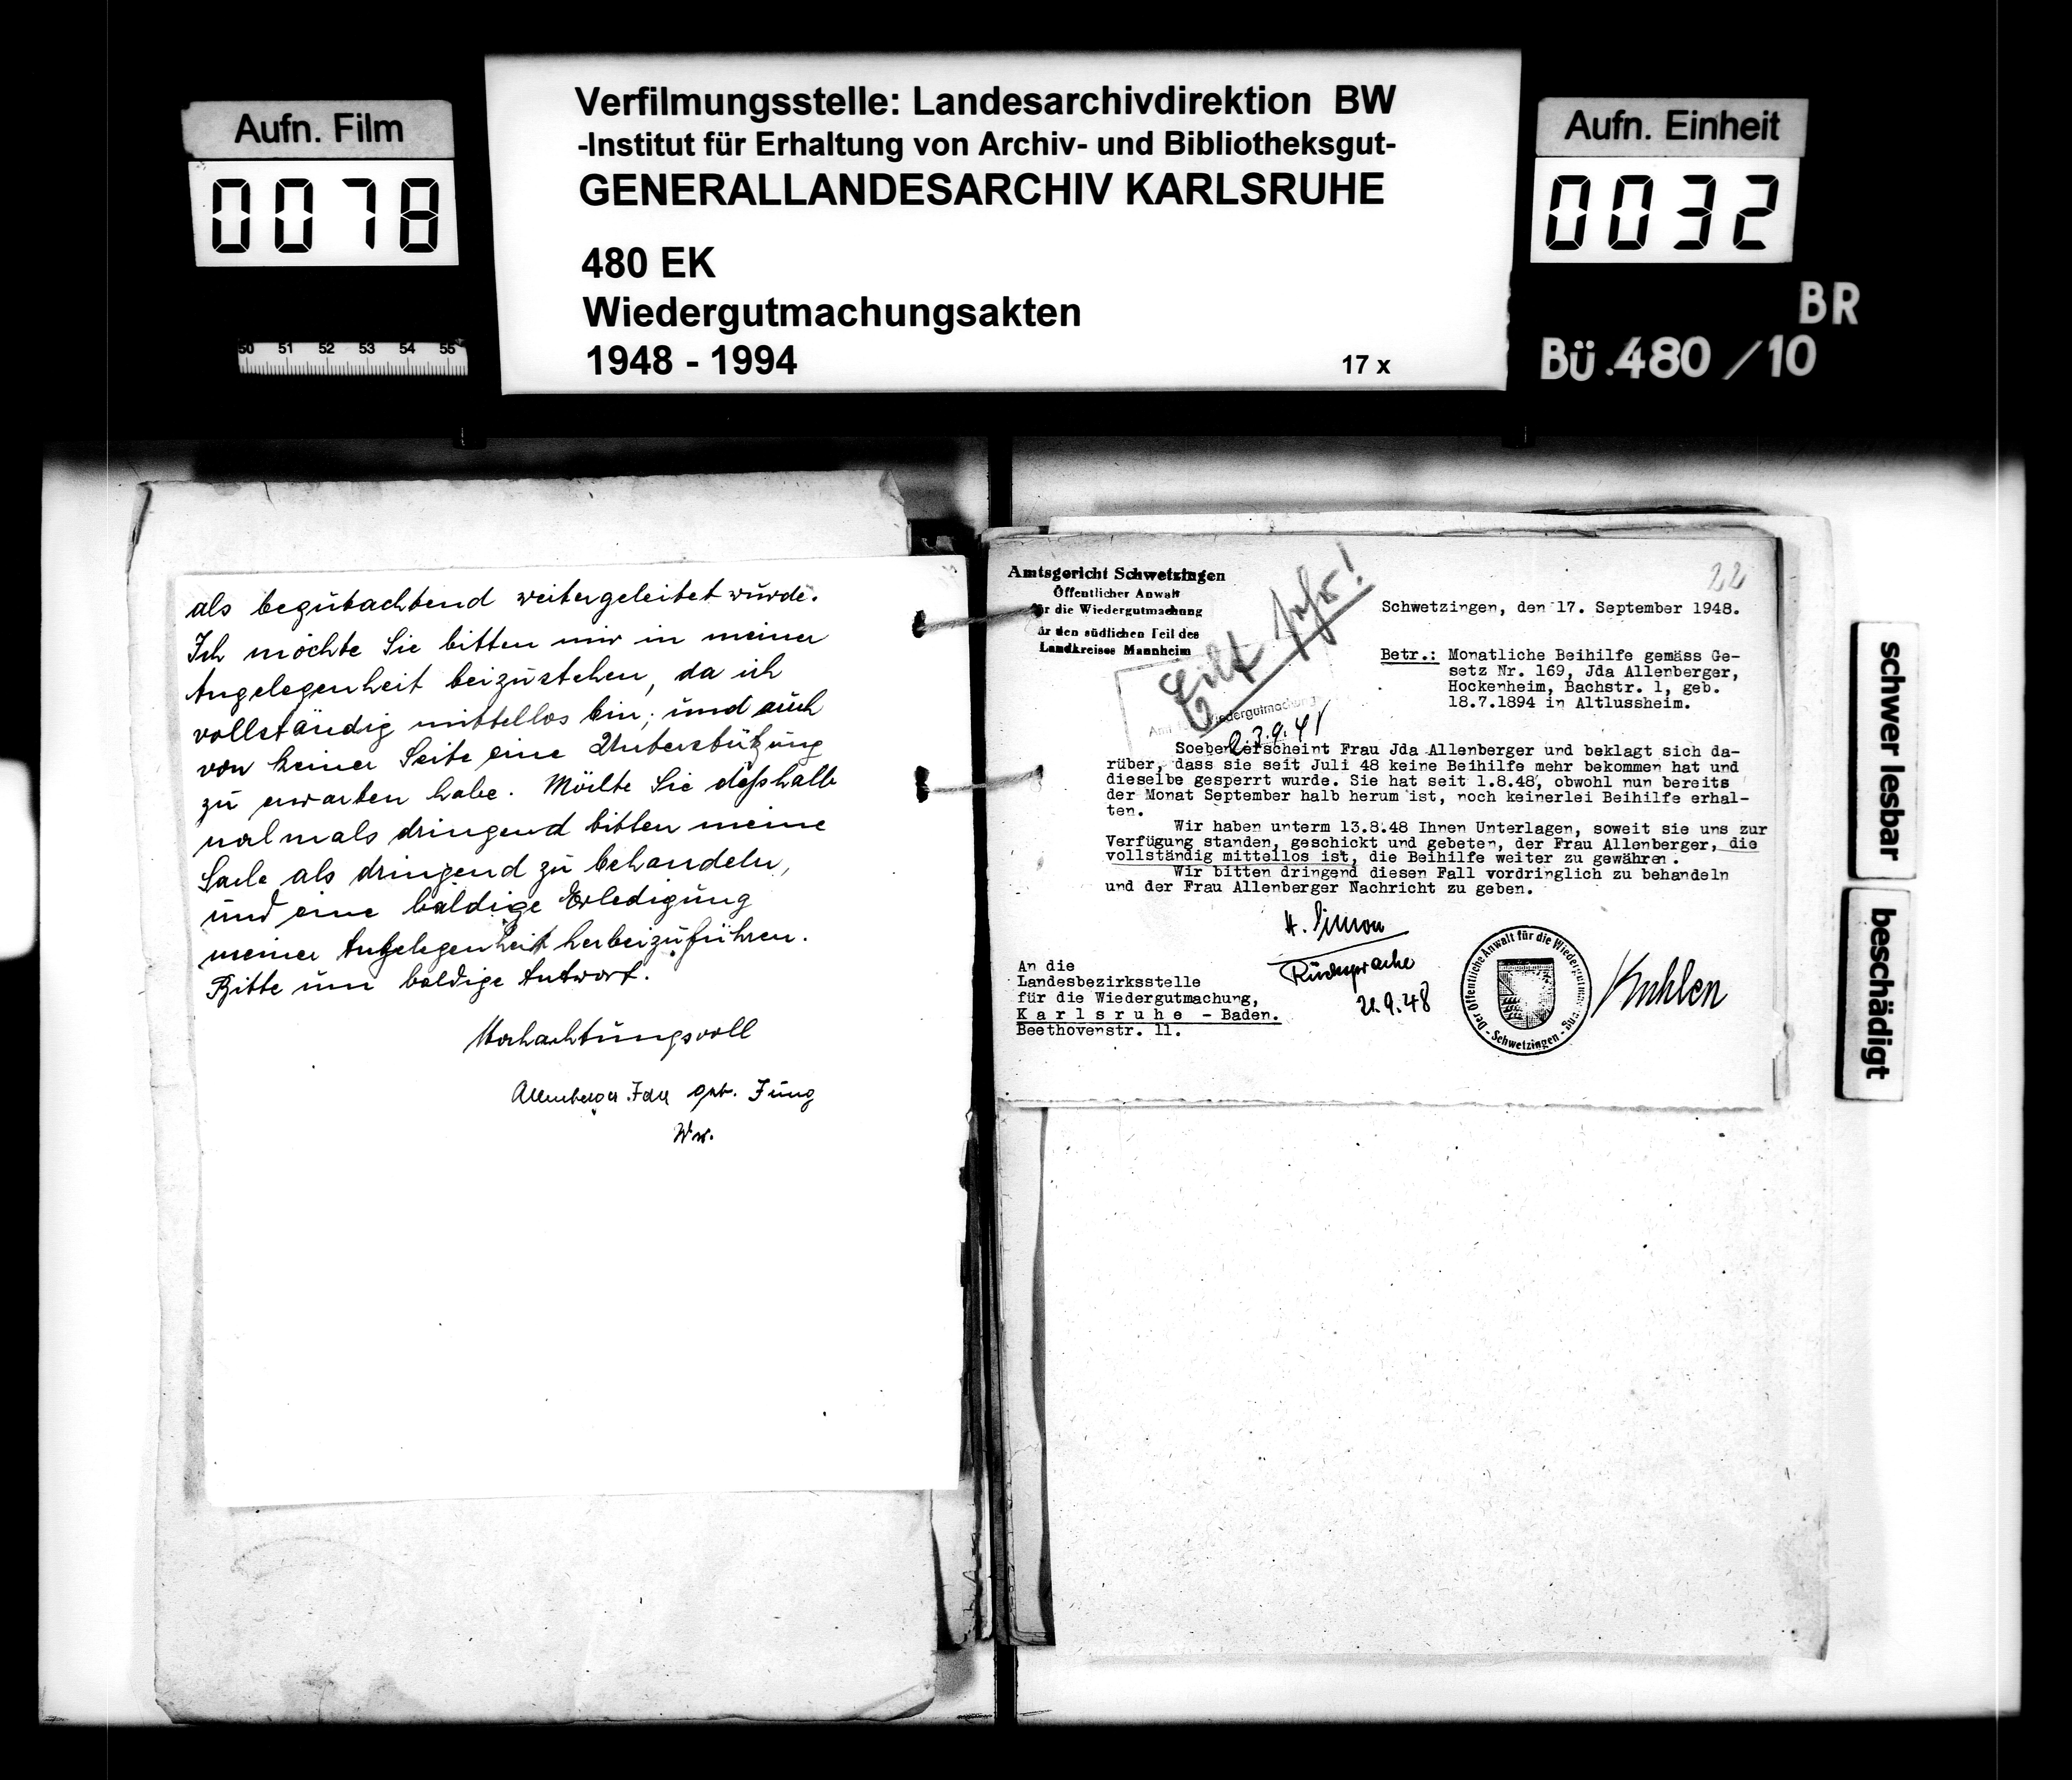 Aufn. Film
0078
Verfilmungsstelle: Landesarchivdirektion BW
-Institut für Erhaltung von Archiv- und Bibliotheksgut-
GENERALLANDESARCHIV KARLSRUHE
480 EK
Wiedergutmachungsakten
1948 - 1994
17 x
Aufn. Einheit
0032
BR
Bü.480/10
50 51 52 53 54 55
als begutachtend weitergeleitet wurde.
Ich möchte Sie bitten mir in meiner
Angelegenheit beizustehen, da ich
vollständig mittellos bin; und auch
von keiner Seite eine Unterstützung
zu erwarten habe. Möchte Sie deßhalb
nochmals dringend bitten meine
Sache als dringend zu behandeln,
und eine baldige Erledigung
meiner Angelegenheit herbeizuführen.
Bitte um baldige Antwort.
Hochachtungsvoll
Allenberger Ida geb. Jung
Ww.
22
Amtsgericht Schwetzingen
Öffentlicher Anwalt
für die Wiedergutmachung
für den südlichen Teil des
Landkreises Mannheim
Eilt sehr!
Schwetzingen, den 17. September 1948.
Betr.: Monatliche Beihilfe gemäss Ge-
setz Nr. 169, Jda Allenberger,
Hockenheim, Bachstr. 1, geb.
18.7.1894 in Altlussheim.
Wiedergutmachung
Soeben erscheint Frau Jda Allenberger und beklagt sich da-
rüber, dass sie seit Juli 48 keine Beihilfe mehr bekommen hat und
dieselbe gesperrt wurde. Sie hat seit 1.8.48, obwohl nun bereits
der Monat September halb herum ist, noch keinerlei Beihilfe erhal-
ten.
Wir haben unterm 13.8.48 Ihnen Unterlagen, soweit sie uns zur
Verfügung standen, geschickt und gebeten, der Frau Allenberger, die
vollständig mittellos ist, die Beihilfe weiter zu gewähren.
Wir bitten dringend diesen Fall vordringlich zu behandeln
und der Frau Allenberger Nachricht zu geben.
H. Simon
Rücksprache
21.9.48
An die
Landesbezirksstelle
für die Wiedergutmachung,
Karlsruhe - Baden.
Beethovenstr. 11.
Der Öffentliche Anwalt für die Wiedergutmachung
- Schwetzingen -
Kuhlen
schwer lesbar
beschädigt